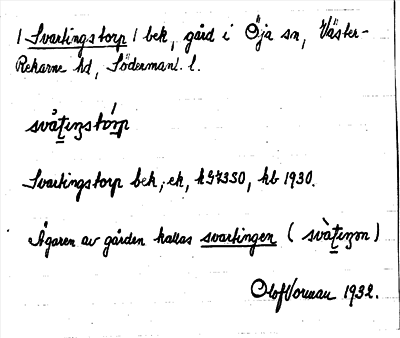 / Svartingstorp / bek, gård i Öja sn, Väster-
Rekarne hd, Södermanl. l.
svàṭiŋstórp
Svartingstorp bek, ek, hb 1930.
Ägaren av gården kallas svartingen (svàṭiŋən)
Olof Vorman 1932.